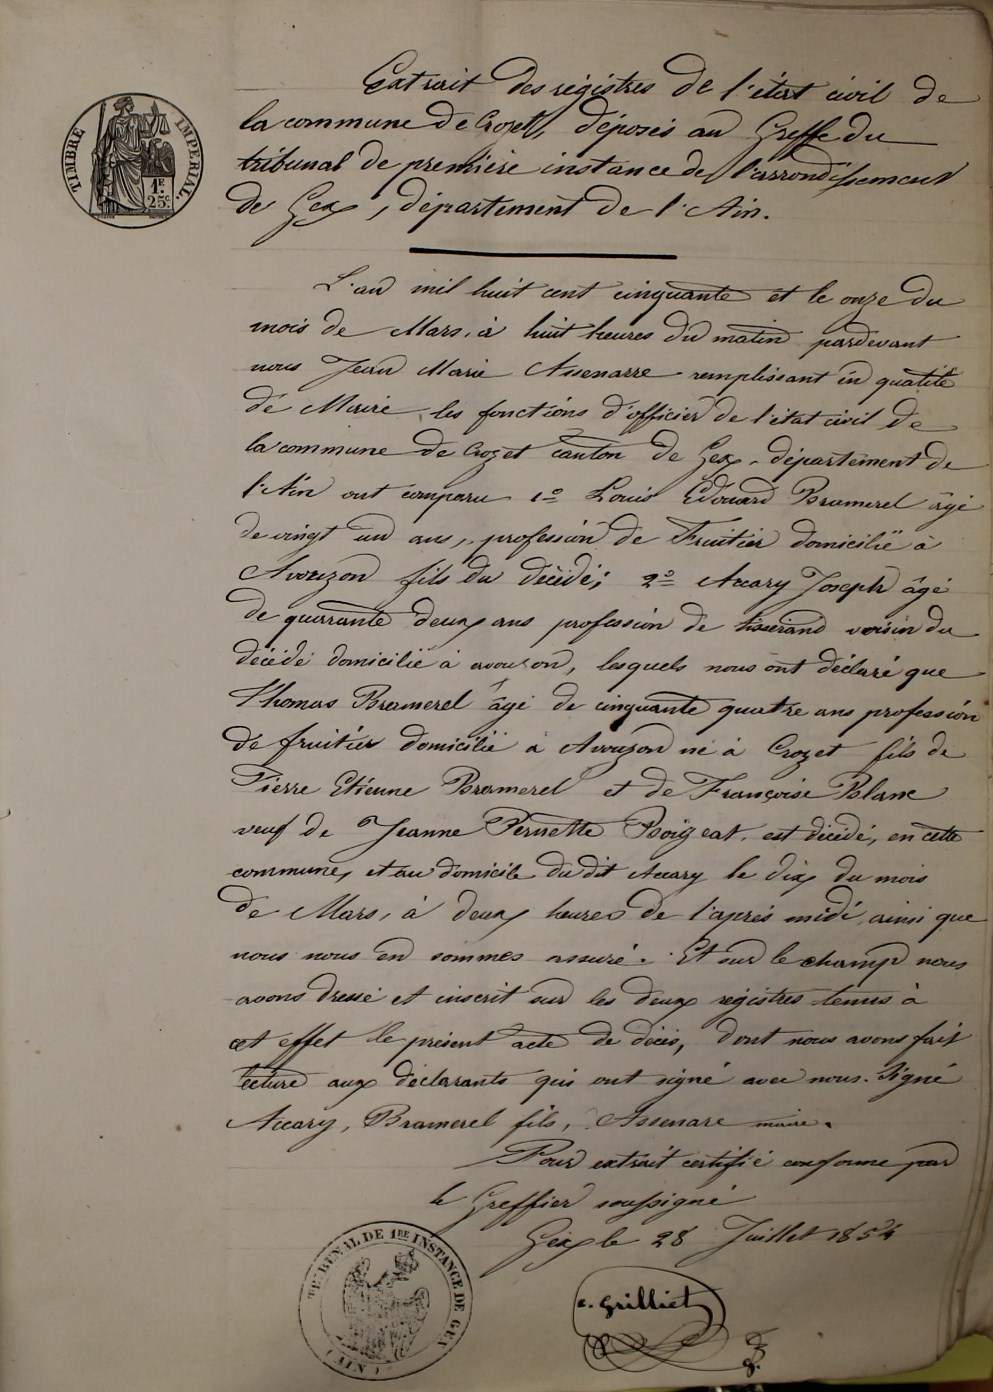 TIMBRE IMPERIAL.
1F.
25c.
Extrait des régistres de l'état civil de
la commune de Crozet, déposés au Greffe du
tribunal de première instance de l'arrondissement
de Gex, département de l'Ain.
L'an mil huit cent cinquante et le onze du
mois de Mars, à huit heures du matin pardevant
nous Jean Marie Assenarre remplissant en qualité
de Maire les fonctions d'officier de l'état civil de
la commune de Crozet canton de Gex, département de
l'Ain ont comparu 1º Louis Edouard Bramerel âgé
de vingt un ans, profession de Fruitier domicilié à
Avouzon fils du décédé; 2º Accary Joseph âgé
de quarante deux ans profession de tisserand voisin du
décédé domicilié à avouzon, lesquels nous ont déclaré que
Thomas Bramerel âgé de cinquante quatre ans profession
de fruitier domicilié à Avouzon né à Crozet fils de
Pierre Etienne Bramerel et de Françoise Blanc
veuf de Jeanne Pernette Boizeat, est décédé, en cette
commune, et au domicile du dit Accary le dix du mois
de Mars, à deux heures de l'après midi, ainsi que
nous nous en sommes assuré. Et sur le champ nous
avons dressé et inscrit sur les deux registres tenus à
cet effet le présent acte de décès, dont nous avons fait
lecture aux déclarants qui ont signé avec nous. Signé
Accary, Bramerel fils, Assenare maire.
Pour extrait certifié conforme par
le Greffier soussigné
Gex le 28 Juillet 1854
TRIBUNAL DE 1RE INSTANCE DE GEX
(AIN)
c. Grilliet